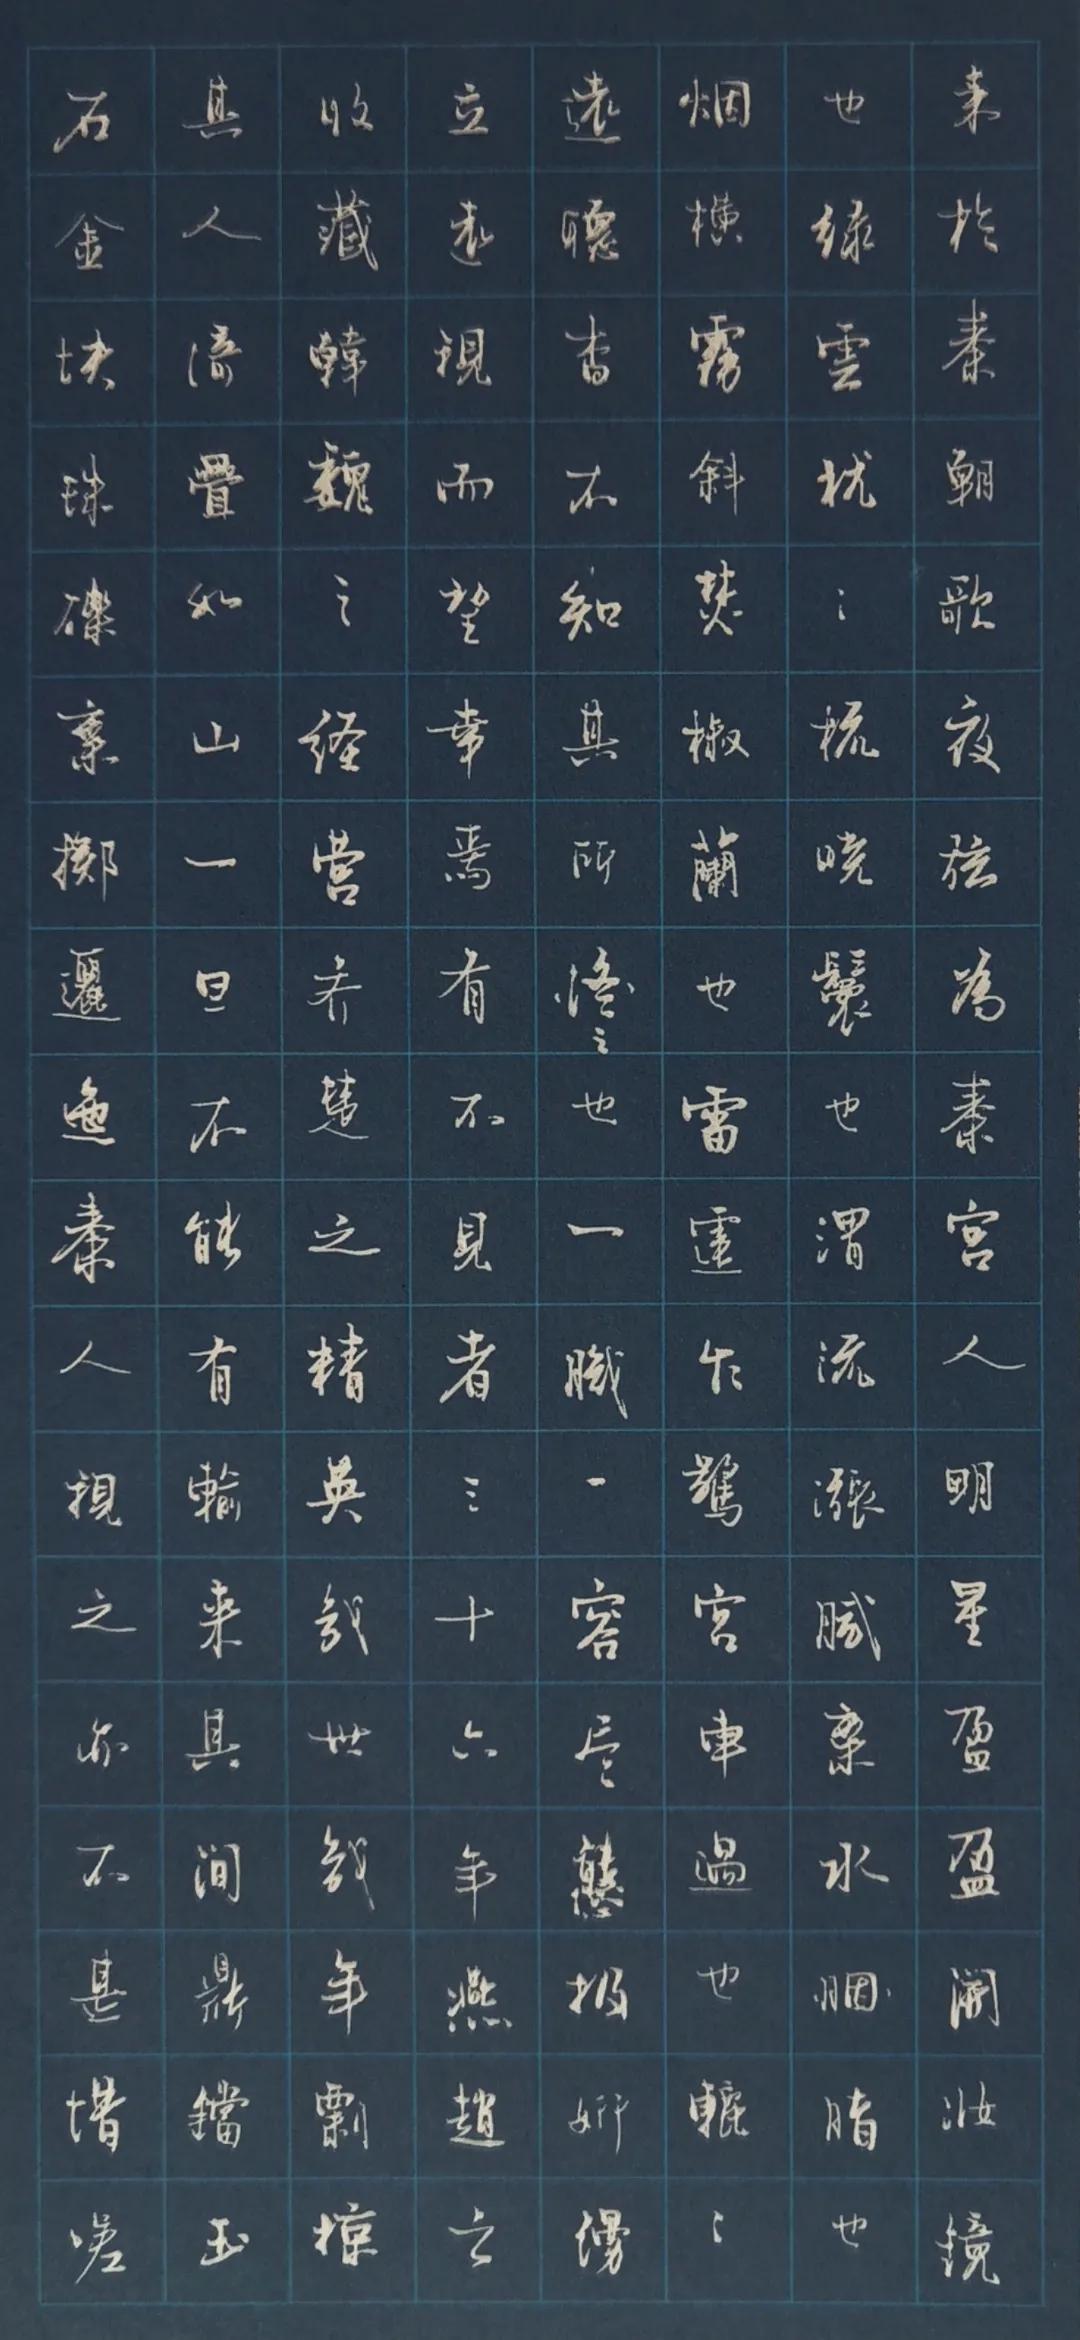 来於秦朝歌夜弦為秦宫人明星盈盈開妝鏡
也緑雲扰〻梳曉鬟也渭流漲膩棄水胭脂也
烟横霧斜焚椒蘭也雷霆乍驚宫車過也轆〻
遠聽杳不知其所之也一膱一容尽態极妍縵
立遠視而望幸焉有不見者三十六年燕趙之
收藏韓魏之経营齐楚之精英幾世幾年剽掠
其人倚疊如山一旦不能有輸来其间鼎鐺玉
石金块珠礫棄擲邐迤秦人視之亦不甚惜嗟